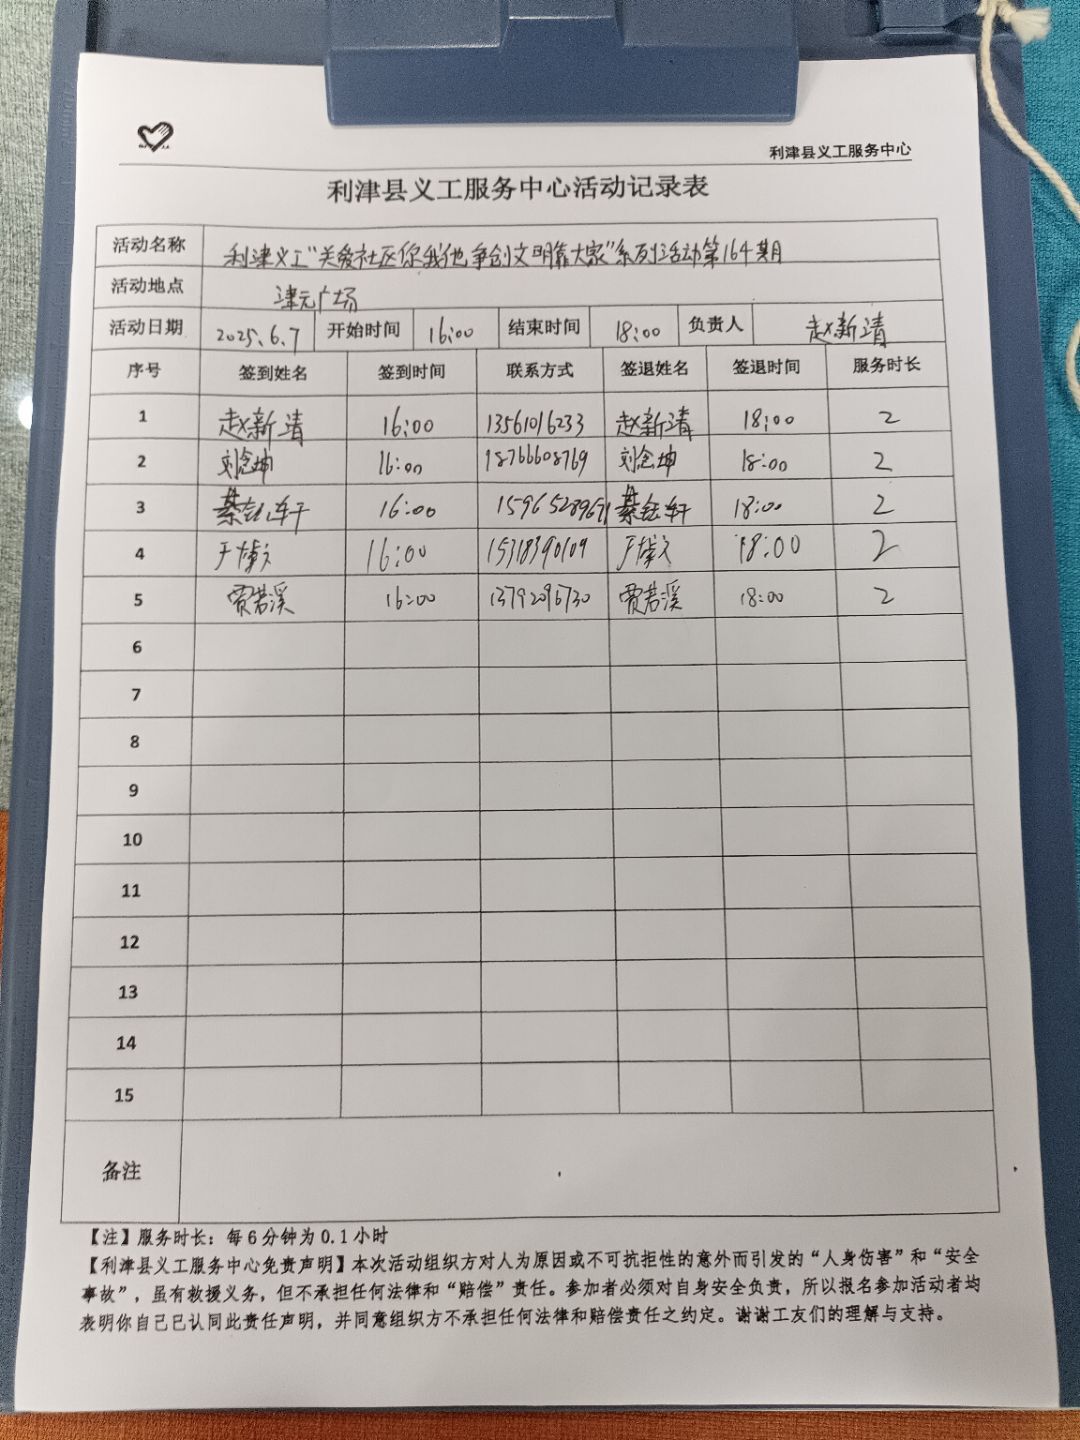 利津县义工服务中心
利津县义工服务中心活动记录表
活动名称 利津义工“关爱社区你我他 争创文明靠大家”系列活动第164期
活动地点 津元广场
活动日期 2025.6.7 开始时间 16:00 结束时间 18:00 负责人 赵新清
序号 签到姓名 签到时间 联系方式 签退姓名 签退时间 服务时长
1 赵新清 16:00 13561016233 赵新清 18:00 2
2 刘念坤 16:00 18766608769 刘念坤 18:00 2
3 綦 轩 16:00 綦 轩 18:00 2
4 16:00 15318390109 18:00 2
5 贾若溪 16:00 13792096730 贾若溪 18:00 2
6
7
8
9
10
11
12
13
14
15
备注
【注】服务时长：每6分钟为0.1小时
【利津县义工服务中心免责声明】本次活动组织方对人为原因或不可抗拒性的意外而引发的“人身伤害”和“安全
事故”，虽有救援义务，但不承担任何法律和“赔偿”责任。参加者必须对自身安全负责，所以报名参加活动者均
表明你自己已认同此责任声明，并同意组织方不承担任何法律和赔偿责任之约定。谢谢工友们的理解与支持。